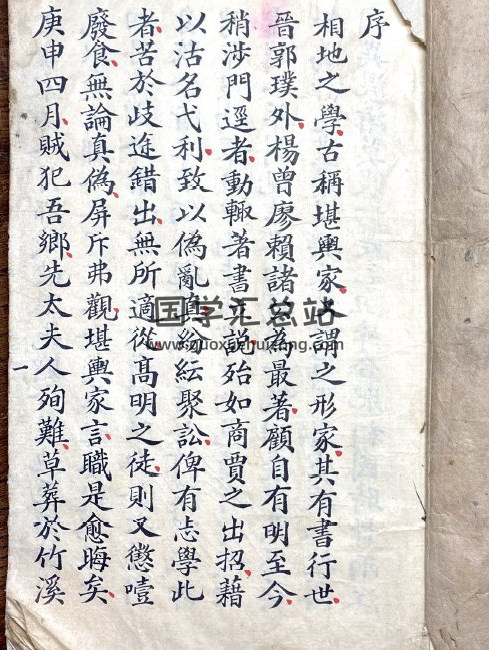 序
相地之學古稱堪輿家謂之形家其有書行世
晉郭璞外楊曾廖賴諸為最著顧自有明至今
稍涉門逕者動輒著書立說殆如商賈之出招藉
以沽名弋利致以偽亂真紛紜聚訟俾有志學此
者苦於歧途錯出無所適從高明之徒則又懲噎
廢食無論真偽屏斥弗觀堪輿家言職是愈晦矣
庚申四月賊犯吾鄉先太夫人殉難草葬於竹溪
一
国学汇总站